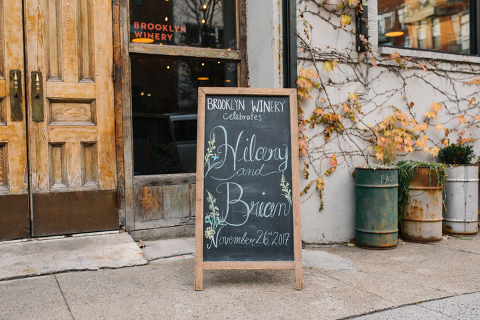 BROOKLYN
WINERY
BROOKLYN WINERY
Celebrates
Hilary
and
Brian
November 26th 2017